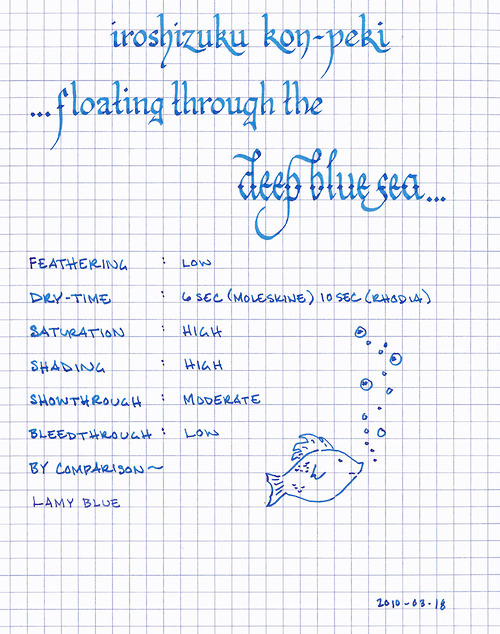 iroshizuku kon-peki
...floating through the
deep blue sea...
FEATHERING : LOW
DRY-TIME : 6 SEC (MOLESKINE) 10 SEC (RHODIA)
SATURATION : HIGH
SHADING : HIGH
SHOWTHROUGH : MODERATE
BLEEDTHROUGH : LOW
BY COMPARISON~
LAMY BLUE
2010-03-18